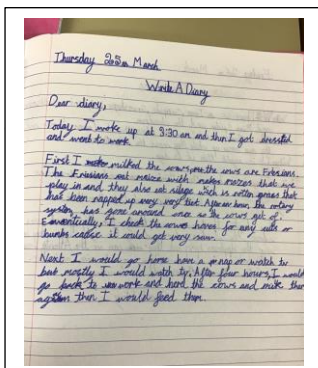 Thursday 25th March
Write A Diary
Dear diary,
Today I woke up at 3:30 am and then I got dressed
and went to work.
First I milked the cows, the cows are Fresians.
The Fresians eat maize with makes mazes that we
play in and they also eat silage wich is rotten grass that
has been rapped up very, very tied. After an hour, the rotary
system has gone around once so the cows get of.
Eventually, I check the cows hoves for any cuts or
bumbs cause it could get very sore.
Next I would go home have a nap or watch tv
but mostly I would watch tv. After four hours, I would
go back to work and herd the cows and milk them
again then I would feed them.